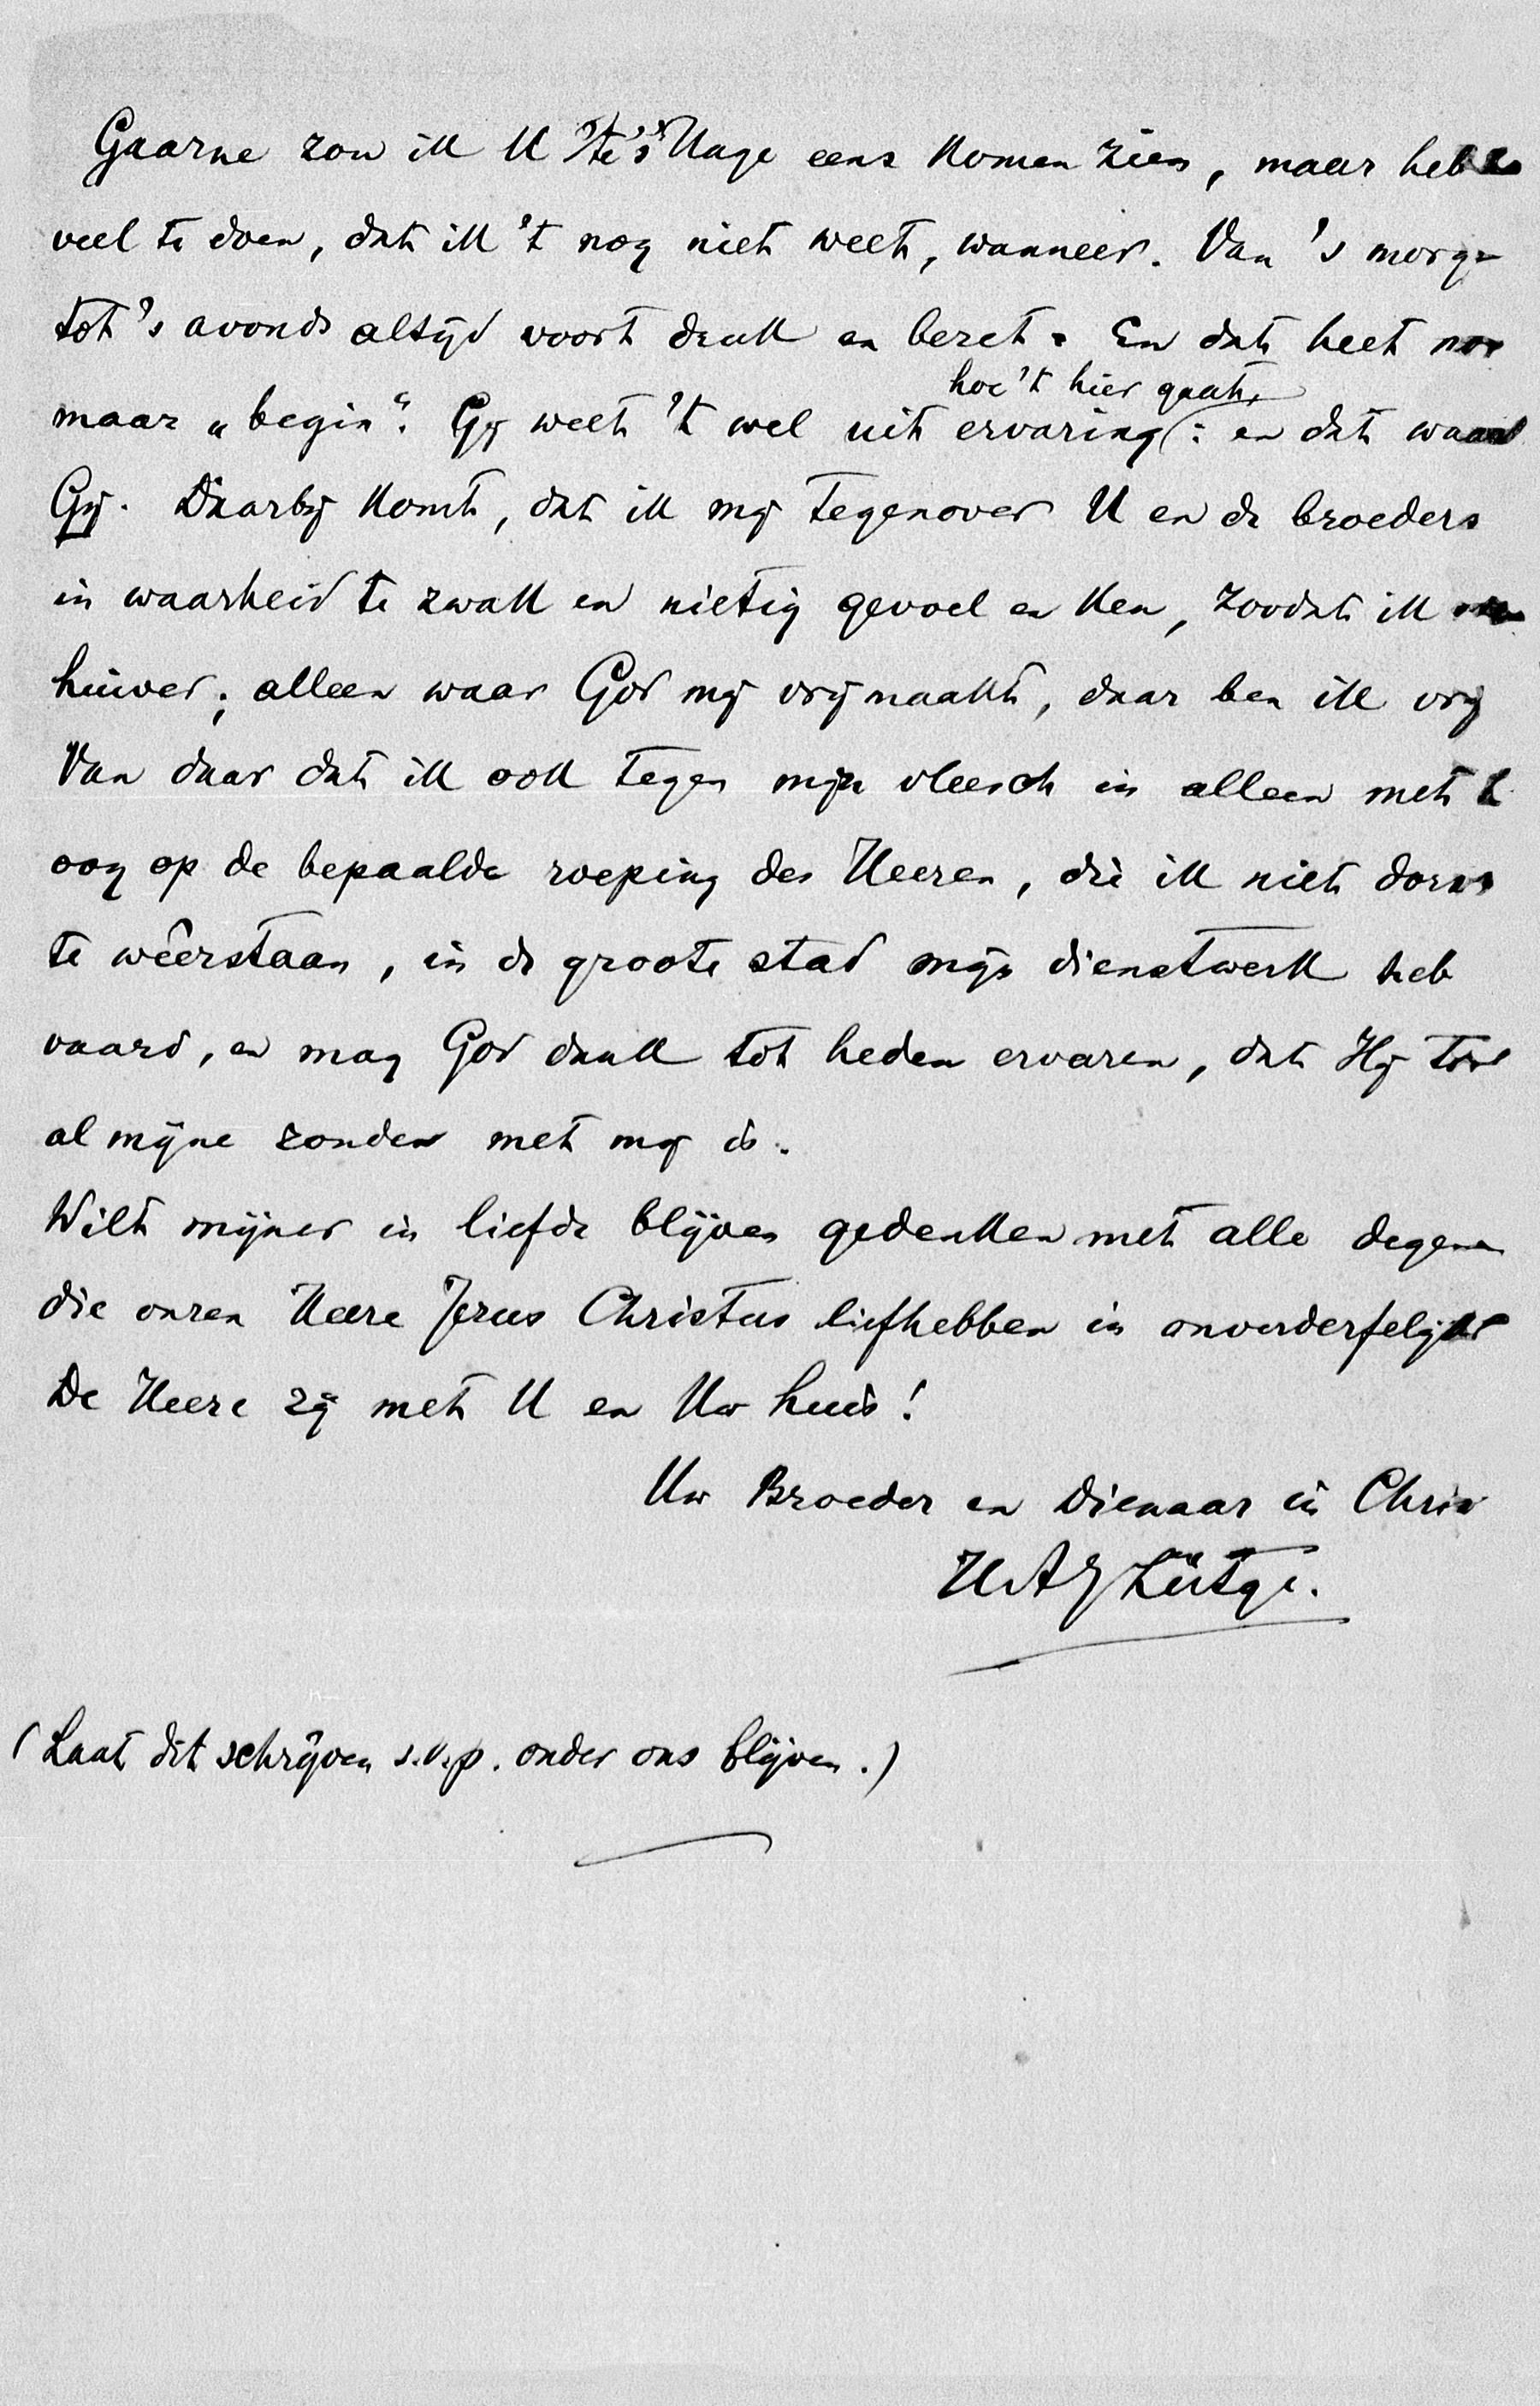 Gaarne zou ik U te 's Hage eens komen zien, maar heb zo
veel te doen, dat ik 't nog niet weet, wanneer. Van 's morge
tot 's avonds altijd voort druk en bezet. En dat heet nog
maar „begin”. Gij weet 't wel uit ervaring
hoe 't hier gaat,
: en dat waart
Gij. Daarbij komt, dat ik mij tegenover U en de broeders
in waarheid te zwak en nietig gevoel en ken, zoodat ik
huiver; alleen waar God mij vrijmaakt, daar ben ik vrij
Van daar dat ik ook tegen mijn vleesch in alleen met 't
oog op de bepaalde roeping des Heeren, die ik niet dorst
te wêerstaan, in de groote stad mijn dienstwerk heb
vaard, en mag God dank tot heden ervaren, dat Hij
al mijne zonden met mij is.
Wilt mijner in liefde blijven gedenken met alle degenen
die onzen Heere Jezus Christus liefhebben in onverderfelijkh
De Heere zij met U en Uw huis!
Uw Broeder en Dienaar in Chris
HAJ Lütge.
(Laat dit schrijven s.v.p. onder ons blijven.)